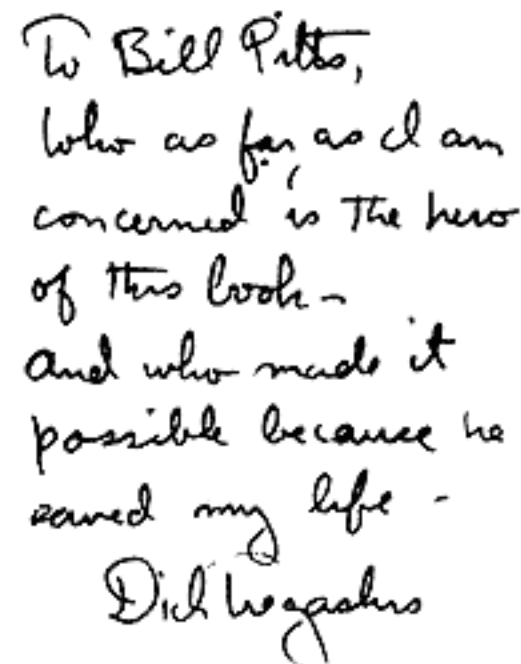 To Bill Pitts,
who as far, as I am
concerned is the hero
of this book –
and who made it
possible because he
saved my life –
Dick